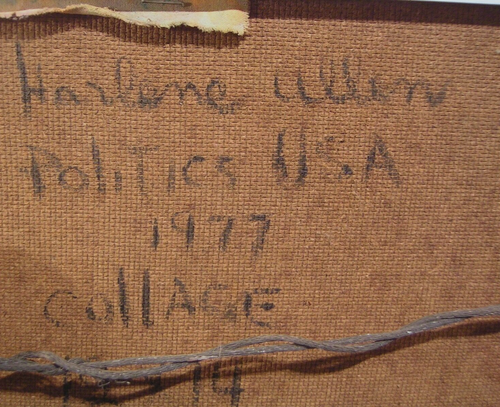 Harlene Allen
PoliTics USA
1977
COllAGE
14